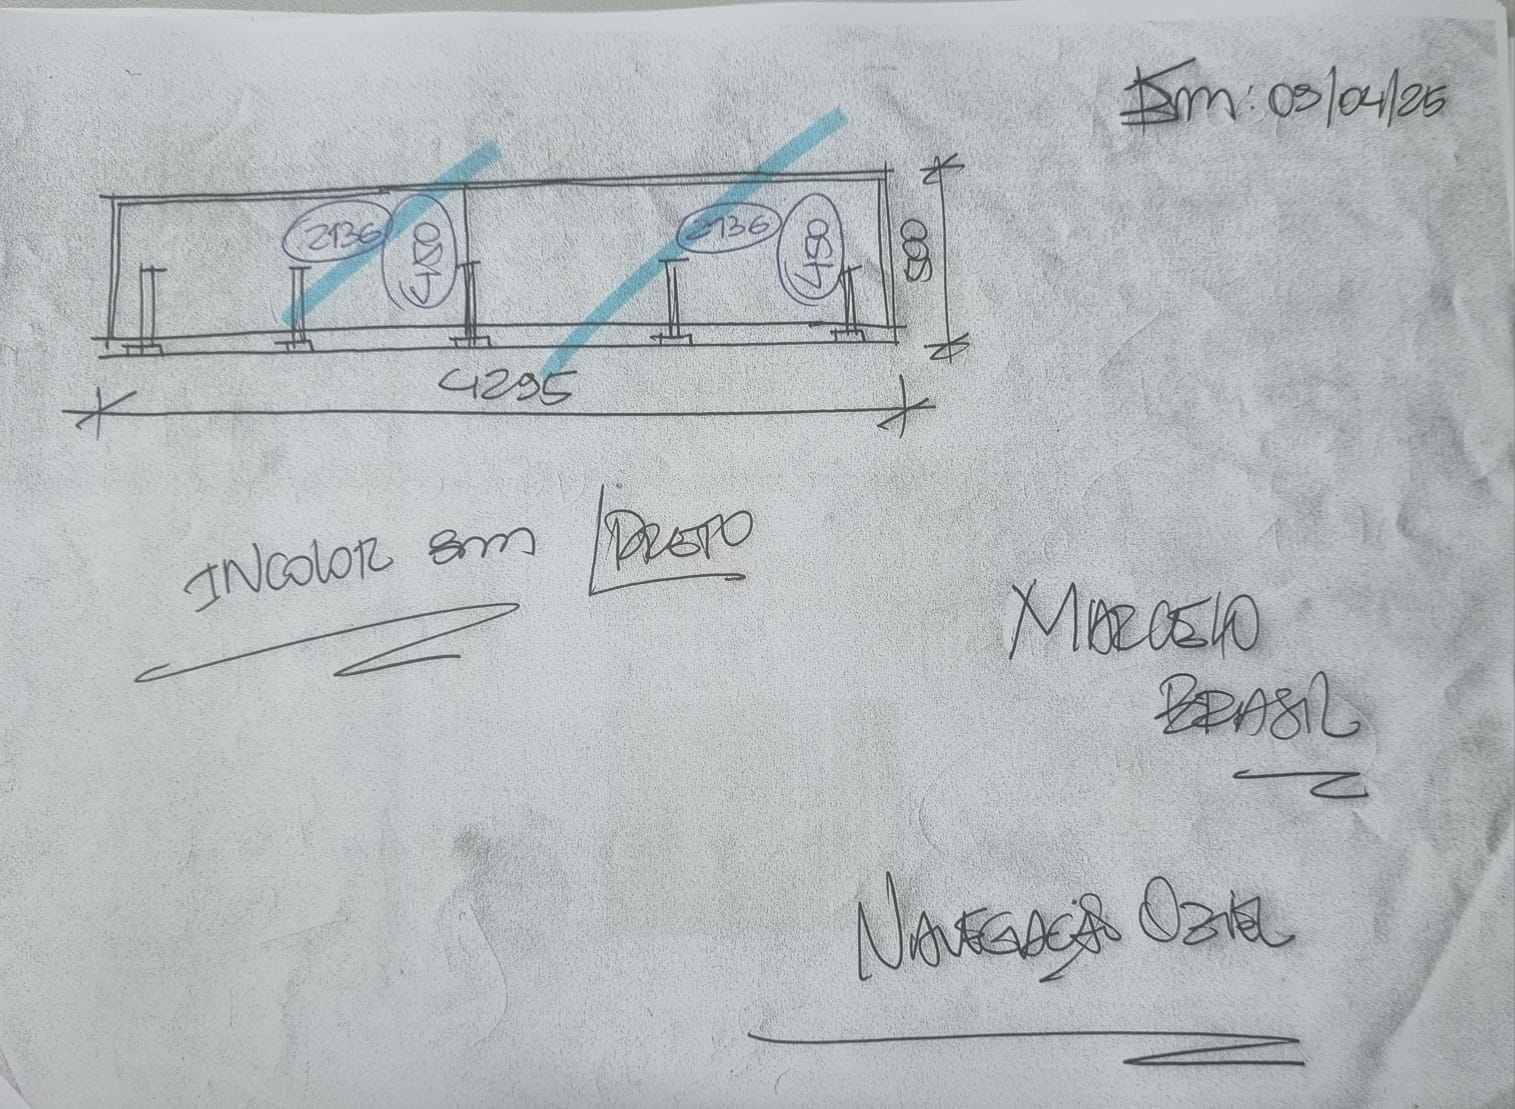 Em: 03/04/25
2136 480 2136 480 500
4295
INCOLOR 8mm PRETO
MARCELO
BRASIL
NAVEGAÇÃO OZIEL